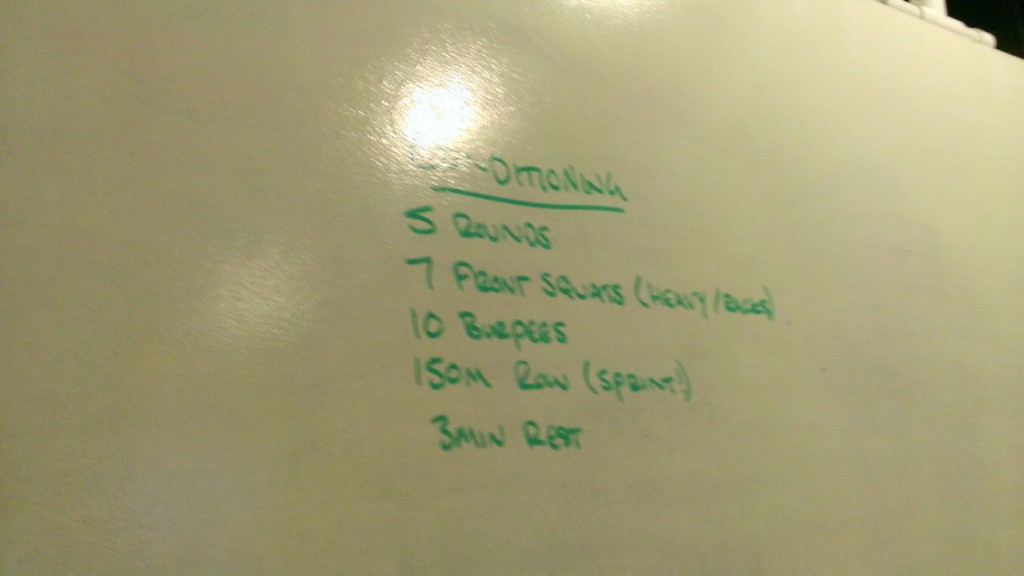 CONDITIONING
5 ROUNDS
7 FRONT SQUATS (HEAVY/
10 BURPEES
150M ROW (SPRINT!)
3MIN REST